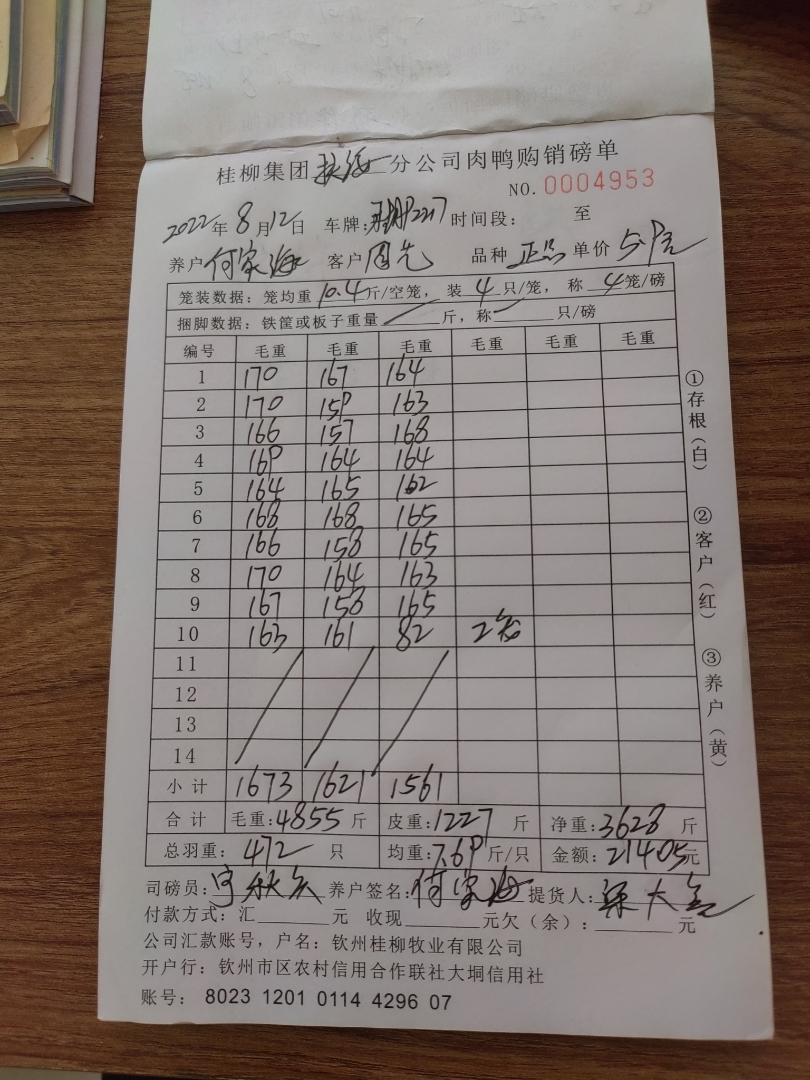 桂柳集团钦海分公司肉鸭购销磅单
NO. 0004953
2022年8月12日 车牌: 时间段: 至
养户何家海 客户周先 品种正品 单价5.9元
笼装数据：笼均重10.4斤/空笼，装4只/笼，称4笼/磅
捆脚数据：铁筐或板子重量 斤，称 只/磅
编号 毛重 毛重 毛重 毛重 毛重 毛重
1 170 167 164
2 170 159 163
3 166 157 168
4 169 164 164
5 164 165 162
6 168 168 165
7 166 158 165
8 170 164 163
9 167 158 165
10 163 161 82 2笼
11
12
13
14
小计 1673 1621 1561
合计 毛重:4855斤 皮重:1227斤 净重:3628斤
总羽重：472只 均重:7.69斤/只 金额:21405元
司磅员: 养户签名:何家海 提货人:
付款方式：汇 元 收现 元欠（余）: 元
公司汇款账号，户名：钦州桂柳牧业有限公司
开户行：钦州市区农村信用合作联社大垌信用社
账号： 8023 1201 0114 4296 07
①存根（白）
②客户（红）
③养户（黄）